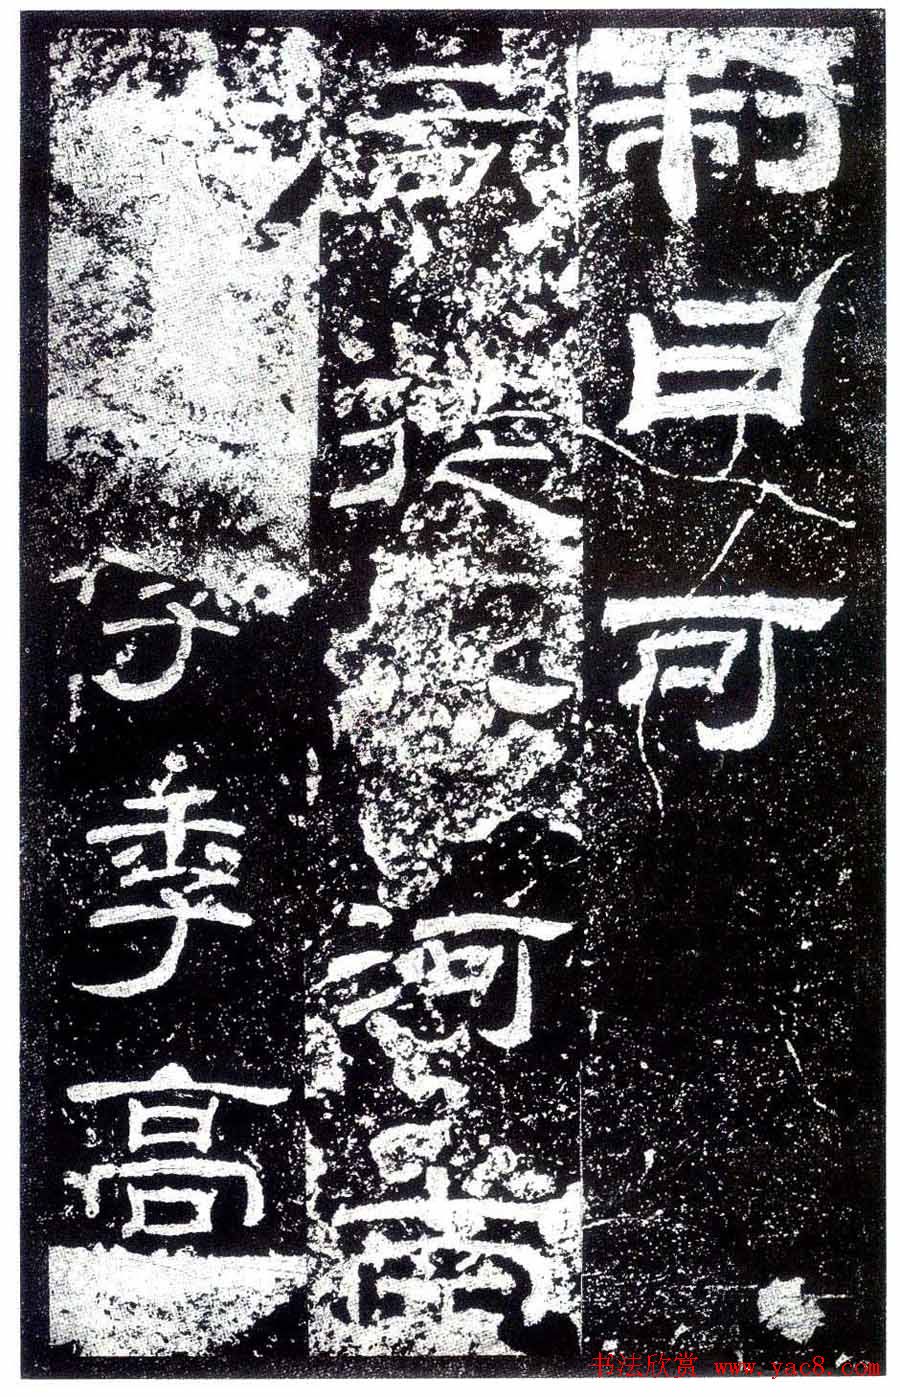 制曰可
司徒公河南
字季高
书法欣赏 www.yac8.com